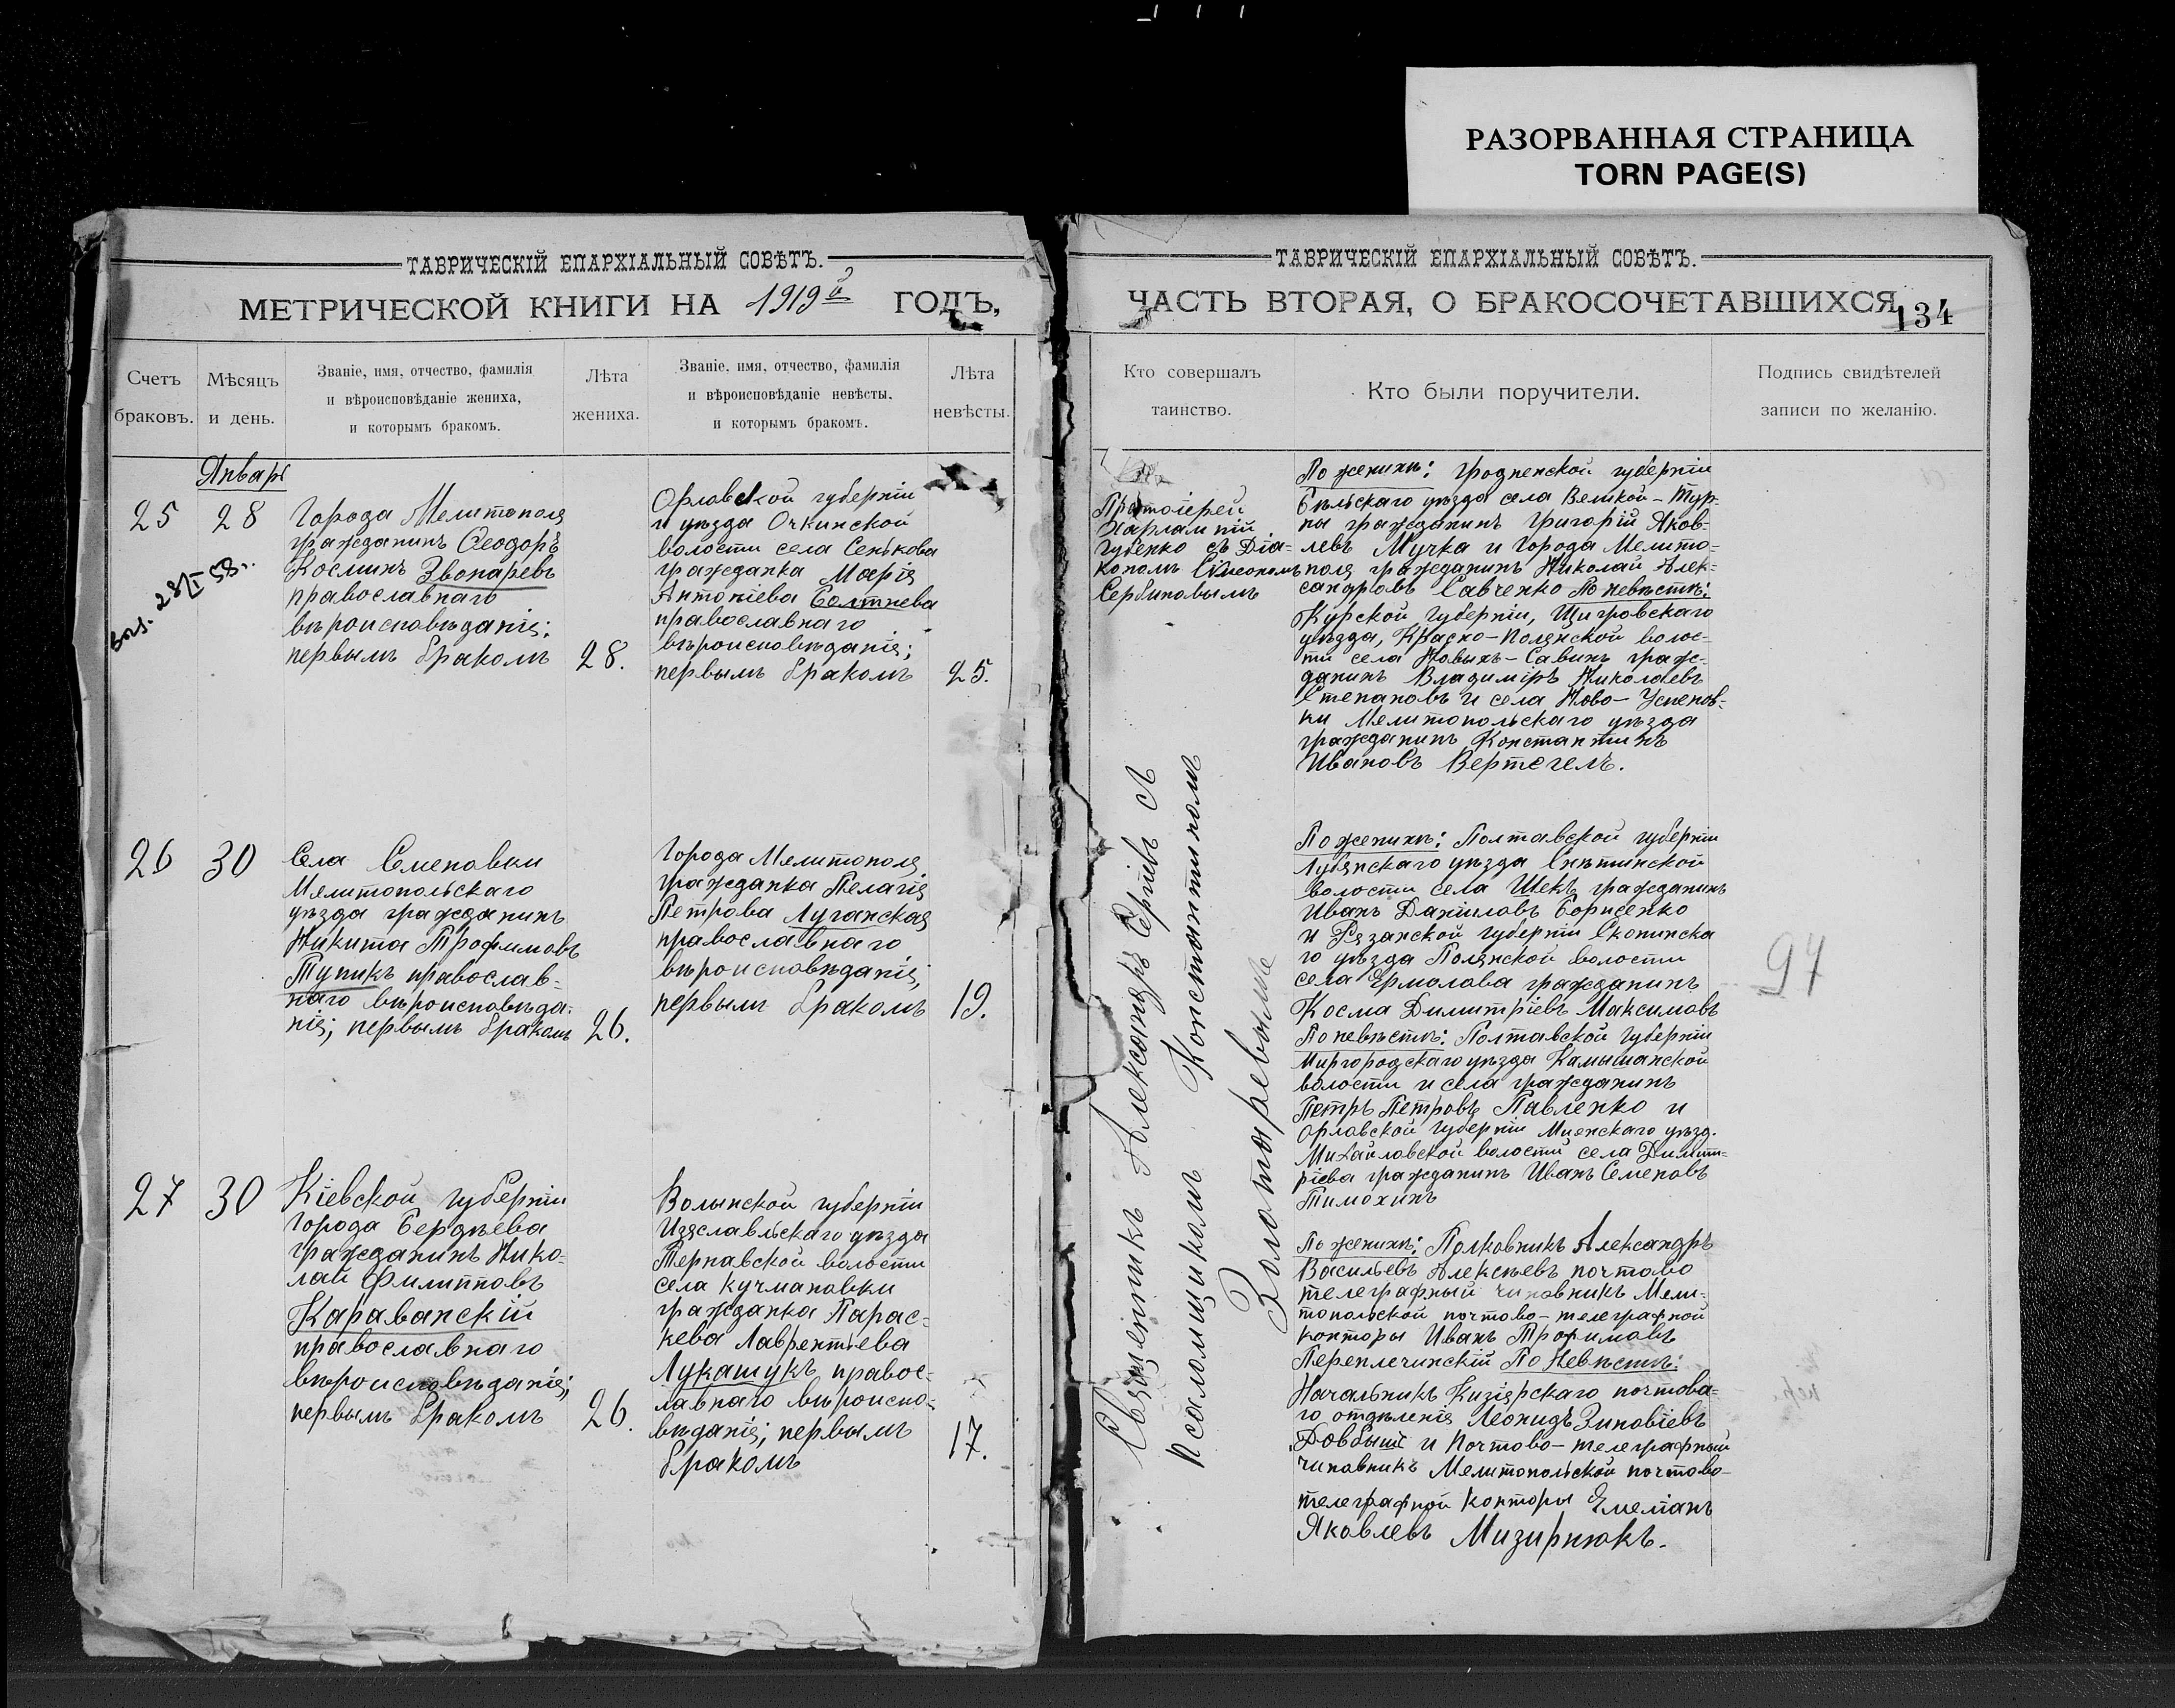 РАЗОРВАННАЯ СТРАНИЦА
TORN PAGE(S)
ТАВРИЧЕСКІЙ ЕПАРХІАЛЬНЫЙ СОВѢТЪ.
МЕТРИЧЕСКОЙ КНИГИ НА 1919й ГОДЪ,
Счетъ браковъ.
Мѣсяцъ и день.
Званіе, имя, отчество, фамилія
и вѣроисповѣданіе жениха,
и которымъ бракомъ.
Лѣта жениха.
Званіе, имя, отчество, фамилія
и вѣроисповѣданіе невѣсты,
и которымъ бракомъ.
Лѣта невѣсты.
Январь
25
28
28/I 58
Города Мелитополя
гражданинъ Ѳеодоръ
Косминъ Звонаревъ
православнаго
вѣроисповѣданія;
первымъ бракомъ
28.
Орловской губерніи
и уѣзда Очкинской
волости села Сенькова
гражданка Марія
Антоніева
православнаго
вѣроисповѣданія;
первымъ бракомъ
25.
26
30
Села Семеновки
Мелитопольскаго
уѣзда гражданинъ
Никита Трофимовъ
Тупикъ православ-
наго вѣроисповѣда-
нія; первымъ бракомъ
26.
Города Мелитополя
гражданка Пелагія
Петрова Луганская
православнаго
вѣроисповѣданія;
первымъ бракомъ
19.
27
30
Кіевской губерніи
города Бердичева
гражданинъ Нико-
лай Филипповъ
Караванскій
православнаго
вѣроисповѣданія;
первымъ бракомъ
26.
Волынской губерніи
Изяславльскаго уѣзда
Тернавской волости
села Кучмановки
гражданка Парас-
кева Лаврентьева
Лукашукъ правос-
лавнаго вѣроиспо-
вѣданія; первымъ
бракомъ
17.
ТАВРИЧЕСКІЙ ЕПАРХІАЛЬНЫЙ СОВѢТЪ.
ЧАСТЬ ВТОРАЯ, О БРАКОСОЧЕТАВШИХСЯ
134
Кто совершалъ
таинство.
Кто были поручители.
Подпись свидѣтелей
записи по желанію.
Протоіерей
Харлампій
Губенко съ Діа-
кономъ Сімеономъ
Сербиновымъ
По женихѣ: Гродненской губерніи
Бѣльскаго уѣзда села Великой-Тур-
ны гражданинъ Григорій Яков-
левъ Мучка и города Мелито-
поля гражданинъ Николай Алек-
сандровъ Савченко По невѣстѣ:
Курской губерніи, Щигровскаго
уѣзда, Красно-Полянской волос-
ти села Новыхъ-Савинъ граж-
данинъ Владиміръ Николаевъ
Степановъ и села Ново-Успенов-
ки Мелитопольскаго уѣзда
гражданинъ Константинъ
Ивановъ Вертегелъ.
Священникъ Александръ Сергіевъ съ
псаломщикомъ Константиномъ
Золотаревымъ
По женихѣ: Полтавской губерніи
Лубянскаго уѣзда Снѣтинской
волости села Шекъ гражданинъ
Иванъ Даніиловъ Борисенко
и Рязанской губерніи Скопинска
го уѣзда Полянской волости
села Ермолова гражданинъ
Косма Димитріевъ Максимовъ
По невѣстѣ: Полтавской губерніи
Миргородскаго уѣзда Камышанской
волости и села гражданинъ
Петръ Петровъ Павленко и
Орловской губерніи Мценскаго уѣзд.
Михайловской волости села Димит-
ріева гражданинъ Иванъ Семеновъ
Тимохинъ
97
По женихѣ: Полковникъ Александръ
Васильевъ Алексѣевъ почтово
телеграфный чиновникъ Мели-
топольской почтово-телеграфной
конторы Иванъ Трофимовъ
Переплечинскій По Невѣстѣ:
Начальникъ Кизіярскаго почтова-
го отдѣленія Леонидъ Зиновіевъ
Довбышъ и Почтово-телеграфный
чиновникъ Мелитопольской почтово-
телеграфной конторы Емеліанъ
Яковлевъ Мизирнюкъ.